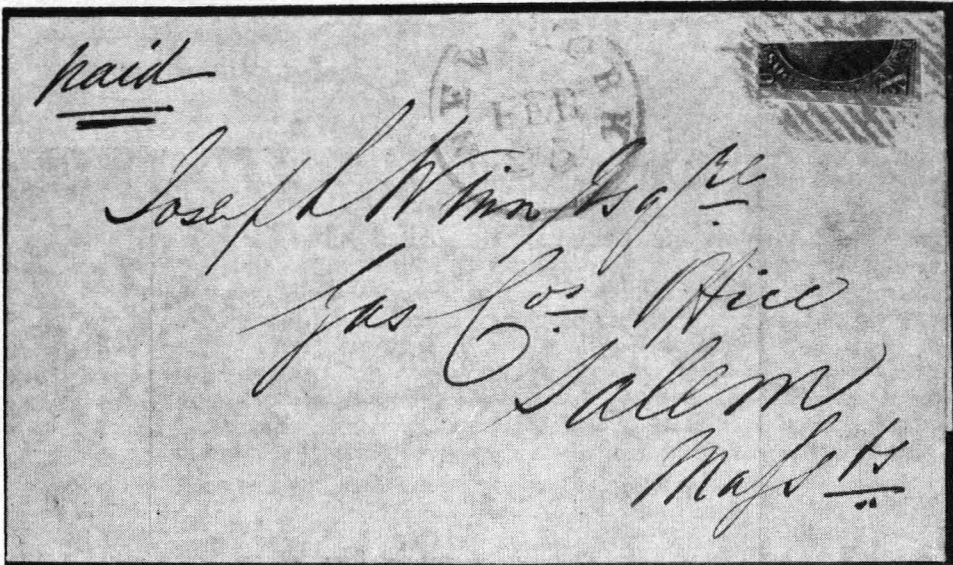 paid
NEW YORK
FEB
Joseph Winn Esqre
Gas Cos Office
Salem
Massts